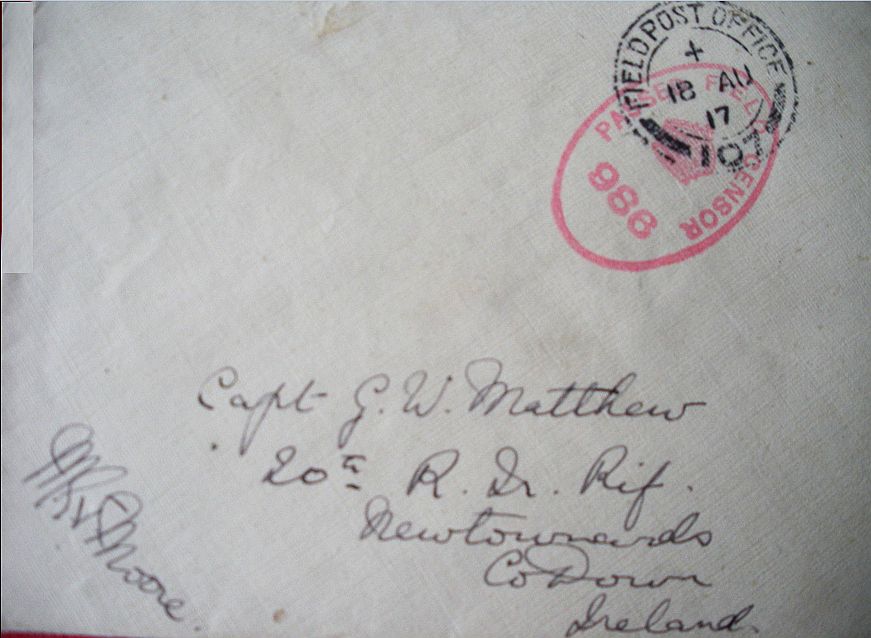 FIELD POST OFFICE
X
18 AU
17
107
PASSED FIELD CENSOR
986
Capt G. W. Matthew
20th R. Ir. Rif.
Newtownards
Co Down
Ireland
Moore.